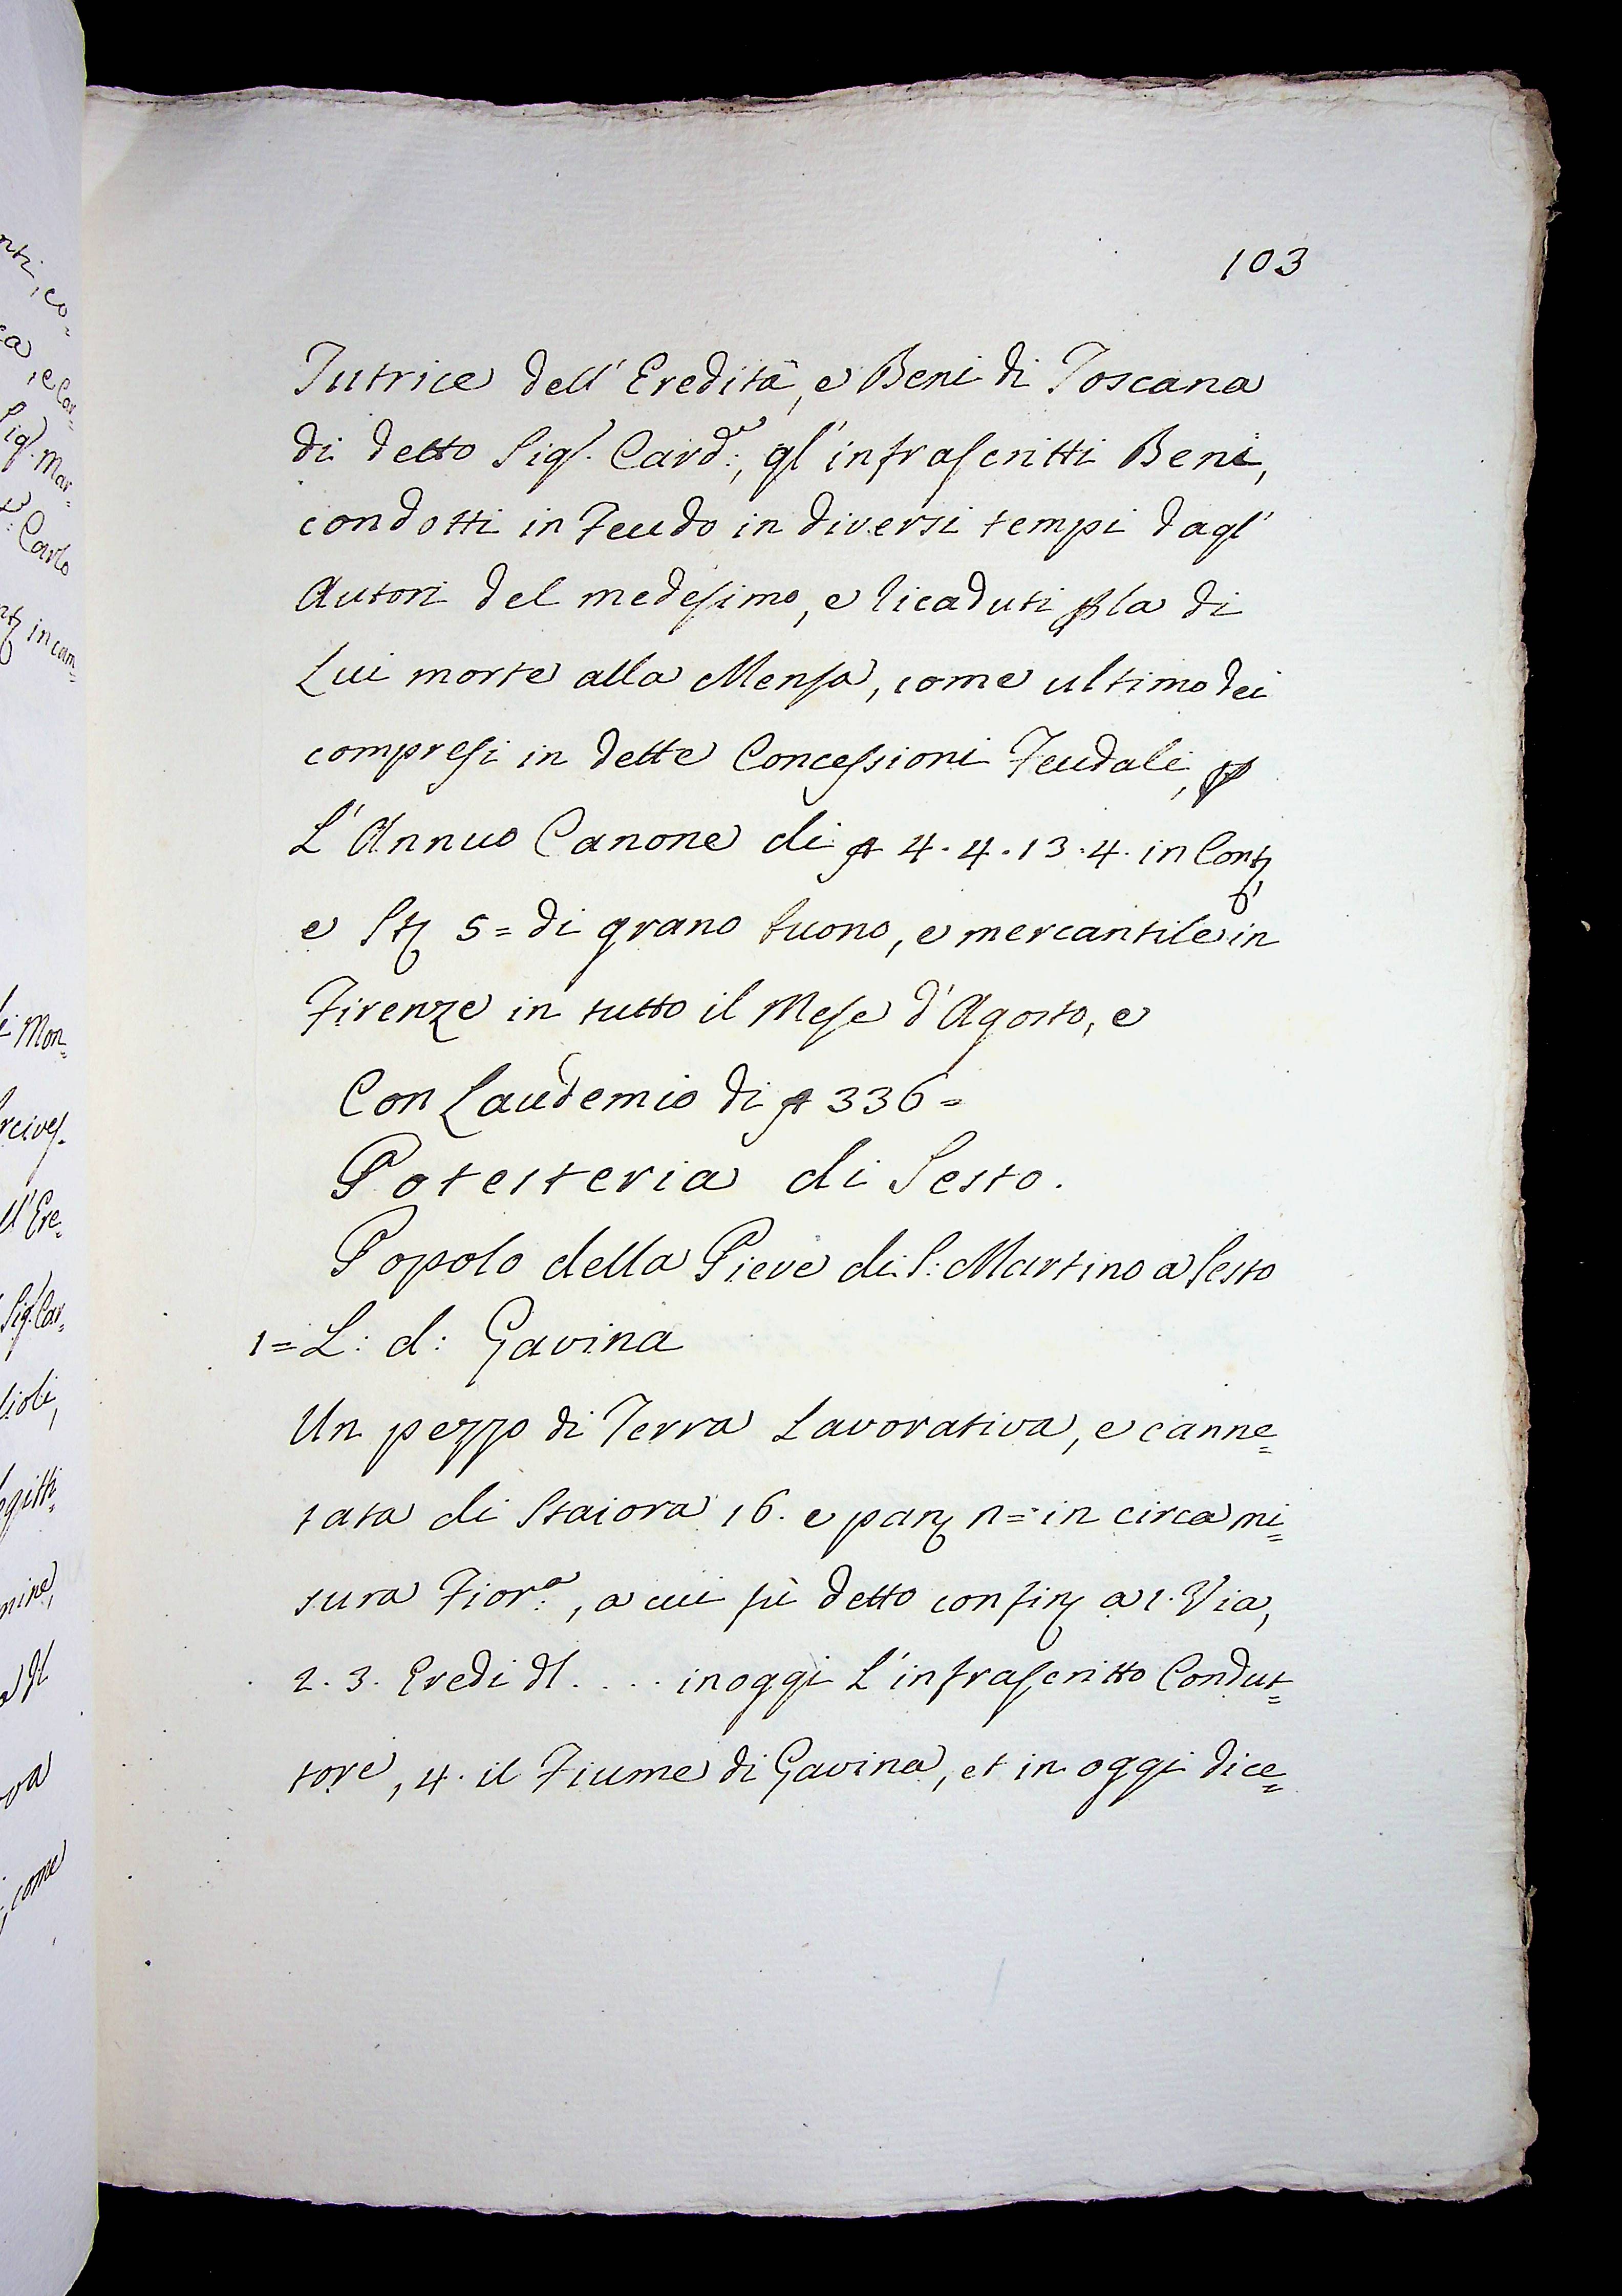 103
Tutrice dell' Eredità, e Beni di Toscana
di detto Sig.r Card.e:, gl' infrascritti Beni,
condotti in Feudo in diversi tempi dagl'
Autori del medesimo, e licaduti p la di
Lui morte alla Mensa, come ultimo dei
compresi in dette Concessioni Feudali, p
L'Annuo Canone di 4. 4. 13. 4. in Cont
e St 5= di grano buono, e mercantile in
Firenze in tutto il Mese d'Agosto, e
Con Laudemio di 336=
Potesteria di Sesto.
Popolo della Pieve di S: Martino a Sesto
1= L: d: Gavina
Un pezzo di Terra Lavorativa, e canne=
tata di Staiora 16. e pan n= in circa mi=
sura Fior:a, a cui fù detto confin a 1. Via,
2. 3. Eredi dl .... in oggi L'infrascritto Condut=
tore, 4. il Fiume di Gavina, et in oggi dice=